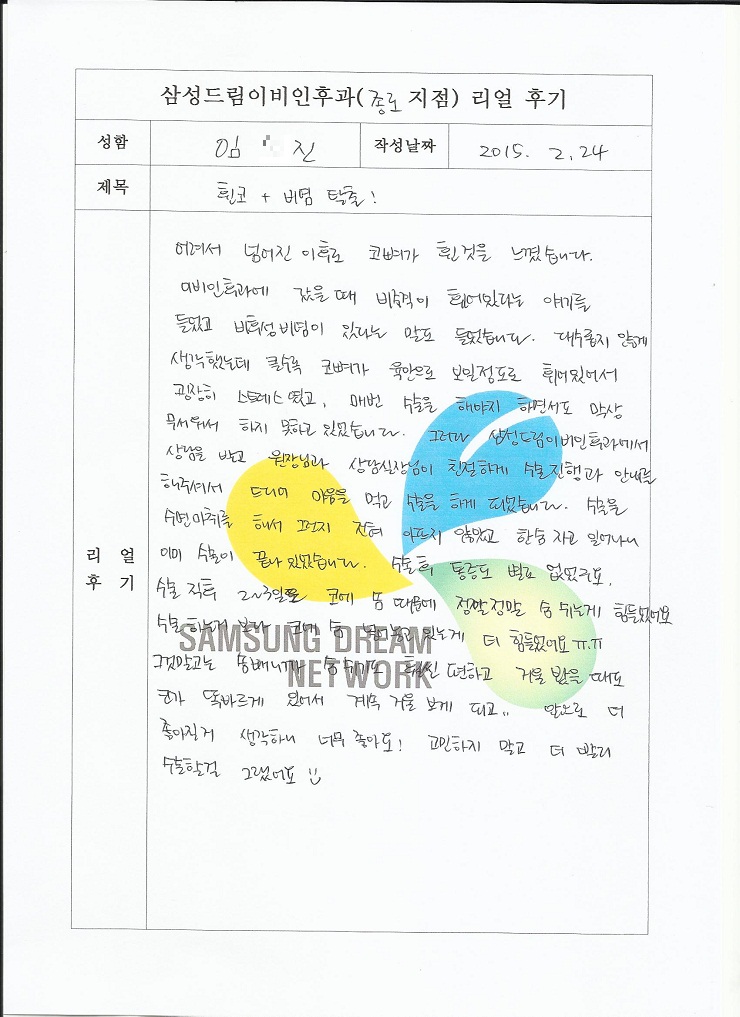 삼성드림이비인후과(종로 지점) 리얼 후기
성함 임 진 작성날짜 2015. 2. 24
제목 휜코 + 비염 탈출!
어려서 넘어진 이후로 코뼈가 휜것을 느꼈습니다.
이비인후과에 갔을때 비중격이 휘어있다는 얘기를
들었고 비후성비염이 있다는 말도 들었습니다. 대수롭지 않게
생각했는데 클수록 코뼈가 육안으로 보일정도로 휘어있어서
굉장히 스트레스 였고, 매번 수술을 해야지 하면서도 막상
무서워서 하지 못하고 있었습니다. 그러다 삼성드림이비인후과에서
상담을 받고 원장님과 상담실장님이 친절하게 수술진행과 안내를
해주셔서 드디어 마음을 먹고 수술을 하게 되었습니다. 수술은
수면마취를 해서 그런지 전혀 아프지 않았고 한숨 자고 일어나니
이미 수술이 끝나 있었습니다. 수술후 통증도 별로 없었구요.
리 얼
후 기
수술 직후 2~3일은 코에 솜 때문에 정말정말 숨 쉬는게 힘들었어요
수술 하는거 보다 코에 솜 넣어놓고 있는게 더 힘들었어요 ㅠ.ㅠ
그것말고는 솜빼니까 숨쉬기도 훨씬 편하고 거울 봤을 때도
코가 똑바르게 있어서 계속 거울 보게 되고.. 앞으로 더
좋아질거 생각하니 너무 좋아요! 고민하지 말고 더 빨리
수술할걸 그랬어요
SAMSUNG DREAM
NETWORK